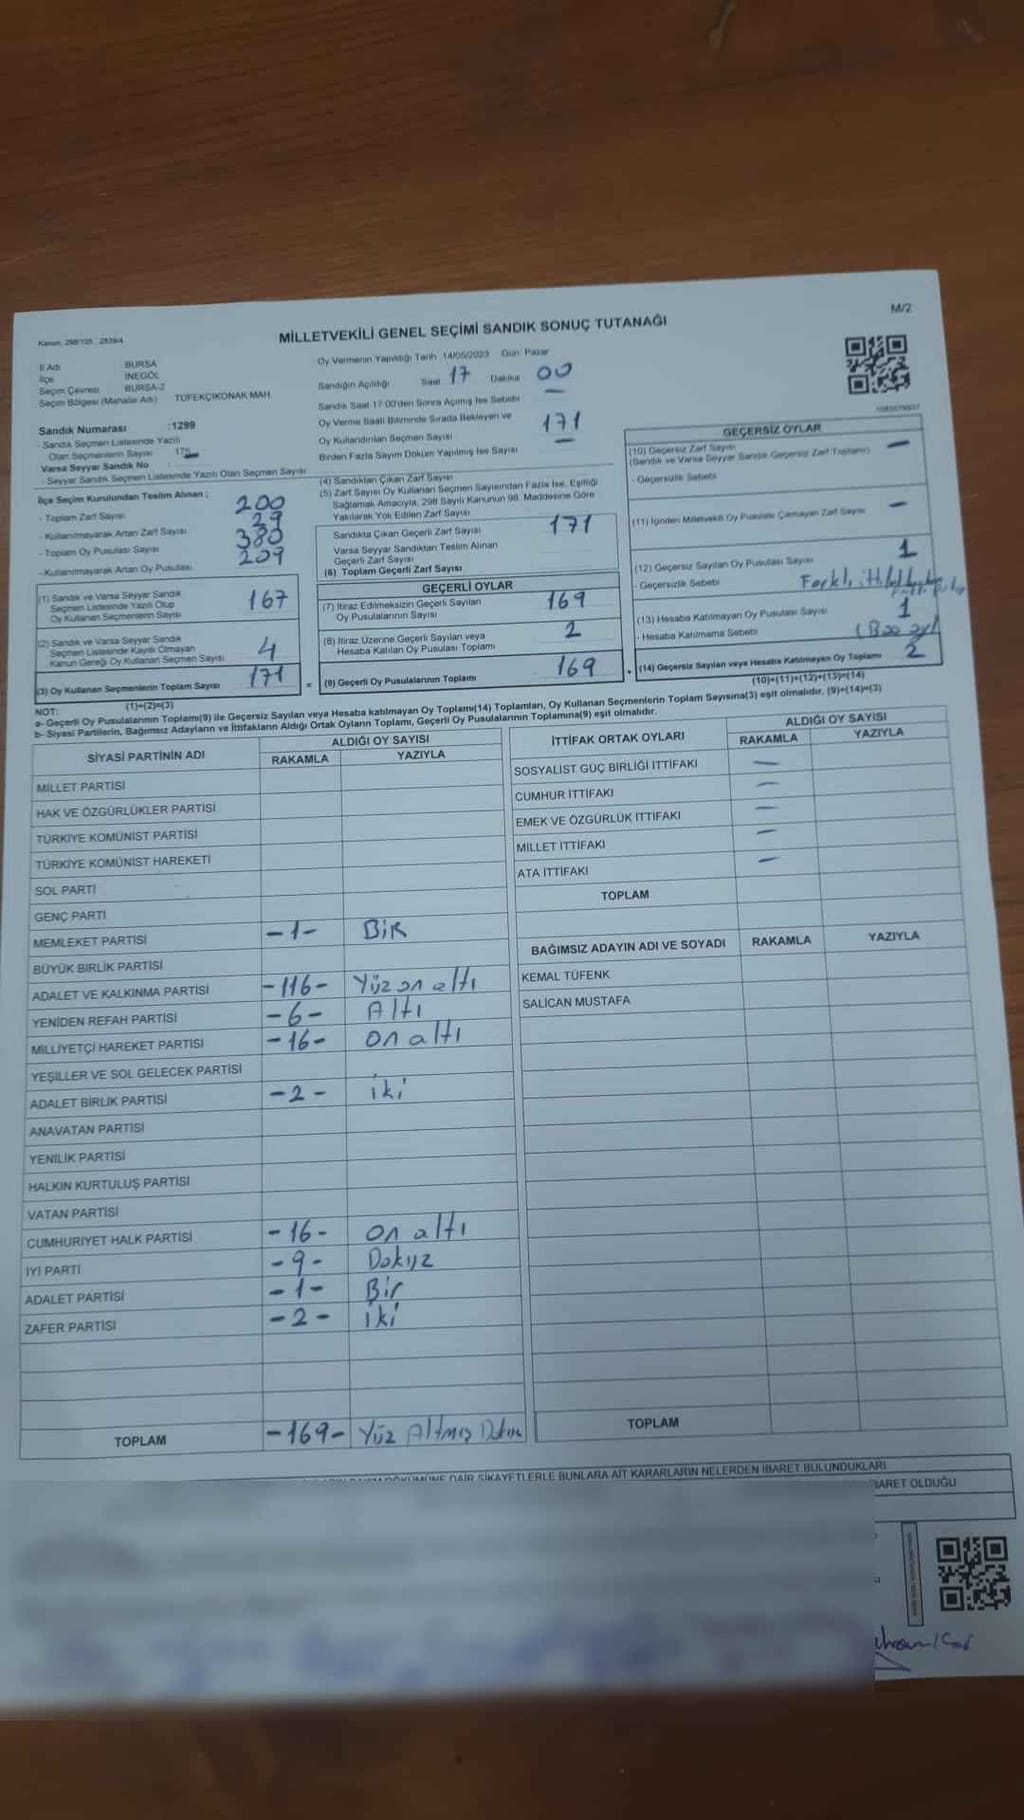 M/2
Kanun, 298/105 , 2839/4
MİLLETVEKİLİ GENEL SEÇİMİ SANDIK SONUÇ TUTANAĞI
İl Adı BURSA
İlçe İNEGÖL
Seçim Çevresi BURSA-2
Seçim Bölgesi (Mahalle Adı) TÜFEKÇİKONAK MAH.
Sandık Numarası :1299
- Sandık Seçmen Listesinde Yazılı
Olan Seçmenlerin Sayısı 175
Varsa Seyyar Sandık No :
- Seyyar Sandık Seçmen Listesinde Yazılı Olan Seçmen Sayısı
Oy Vermenin Yapıldığı Tarih :14/05/2023 Gün: Pazar
Sandığın Açıldığı Saat 17 Dakika 00
Sandık Saat 17:00'den Sonra Açılmış İse Sebebi —
Oy Verme Saati Bitiminde Sırada Bekleyen ve
Oy Kullandırılan Seçmen Sayısı 171
Birden Fazla Sayım Döküm Yapılmış İse Sayısı —
İlçe Seçim Kurulundan Teslim Alınan ;
- Toplam Zarf Sayısı 200
- Kullanılmayarak Artan Zarf Sayısı 29
- Toplam Oy Pusulası Sayısı 380
- Kullanılmayarak Artan Oy Pusulası 209
(1) Sandık ve Varsa Seyyar Sandık
Seçmen Listesinde Yazılı Olup
Oy Kullanan Seçmenlerin Sayısı 167
(2) Sandık ve Varsa Seyyar Sandık
Seçmen Listesinde Kaydı Olmayan
Kanun Gereği Oy Kullanan Seçmen Sayısı 4
(3) Oy Kullanan Seçmenlerin Toplam Sayısı 171
(1)+(2)=(3)
(4) Sandıktan Çıkan Zarf Sayısı
(5) Zarf Sayısı Oy Kullanan Seçmen Sayısından Fazla İse, Eşitliği
Sağlamak Amacıyla, 298 Sayılı Kanunun 98. Maddesine Göre
Yakılarak Yok Edilen Zarf Sayısı
Sandıkta Çıkan Geçerli Zarf Sayısı 171
Varsa Seyyar Sandıktan Teslim Alınan
Geçerli Zarf Sayısı
(6) Toplam Geçerli Zarf Sayısı
GEÇERLİ OYLAR
(7) İtiraz Edilmeksizin Geçerli Sayılan
Oy Pusulalarının Sayısı 169
(8) İtiraz Üzerine Geçerli Sayılan veya
Hesaba Katılan Oy Pusulası Toplamı 2
(9) Geçerli Oy Pusulalarının Toplamı 169
GEÇERSİZ OYLAR
(10) Geçersiz Zarf Sayısı —
(Sandık ve Varsa Seyyar Sandık Geçersiz Zarf Toplamı)
- Geçersizlik Sebebi
(11) İçinden Milletvekili Oy Pusulası Çıkmayan Zarf Sayısı —
(12) Geçersiz Sayılan Oy Pusulası Sayısı 1
- Geçersizlik Sebebi Farklı
(13) Hesaba Katılmayan Oy Pusulası Sayısı 1
- Hesaba Katılmama Sebebi (Boş oy)
(14) Geçersiz Sayılan veya Hesaba Katılmayan Oy Toplamı 2
(10)+(11)+(12)+(13)=(14)
NOT:
a- Geçerli Oy Pusulalarının Toplamı(9) ile Geçersiz Sayılan veya Hesaba katılmayan Oy Toplamı(14) Toplamları, Oy Kullanan Seçmenlerin Toplam Sayısına(3) eşit olmalıdır. (9)+(14)=(3)
b- Siyasi Partilerin, Bağımsız Adayların ve İttifakların Aldığı Ortak Oyların Toplamı, Geçerli Oy Pusulalarının Toplamına(9) eşit olmalıdır.
SİYASİ PARTİNİN ADI ALDIĞI OY SAYISI
RAKAMLA YAZIYLA
MİLLET PARTİSİ
HAK VE ÖZGÜRLÜKLER PARTİSİ
TÜRKİYE KOMÜNİST PARTİSİ
TÜRKİYE KOMÜNİST HAREKETİ
SOL PARTİ
GENÇ PARTİ
MEMLEKET PARTİSİ -1- BİR
BÜYÜK BİRLİK PARTİSİ
ADALET VE KALKINMA PARTİSİ -116- Yüz on altı
YENİDEN REFAH PARTİSİ -6- Altı
MİLLİYETÇİ HAREKET PARTİSİ -16- on altı
YEŞİLLER VE SOL GELECEK PARTİSİ
ADALET BİRLİK PARTİSİ -2- iki
ANAVATAN PARTİSİ
YENİLİK PARTİSİ
HALKIN KURTULUŞ PARTİSİ
VATAN PARTİSİ
CUMHURİYET HALK PARTİSİ -16- on altı
İYİ PARTİ -9- Dokuz
ADALET PARTİSİ -1- Bir
ZAFER PARTİSİ -2- iki
TOPLAM -169- Yüz Altmış Dokuz
İTTİFAK ORTAK OYLARI ALDIĞI OY SAYISI
RAKAMLA YAZIYLA
SOSYALİST GÜÇ BİRLİĞİ İTTİFAKI —
CUMHUR İTTİFAKI —
EMEK VE ÖZGÜRLÜK İTTİFAKI —
MİLLET İTTİFAKI —
ATA İTTİFAKI —
TOPLAM
BAĞIMSIZ ADAYIN ADI VE SOYADI RAKAMLA YAZIYLA
KEMAL TÜFENK
SALİCAN MUSTAFA
TOPLAM
DÖKÜMÜNE DAİR ŞİKAYETLERLE BUNLARA AİT KARARLARIN NELERDEN İBARET BULUNDUKLARI
İBARET OLDUĞU